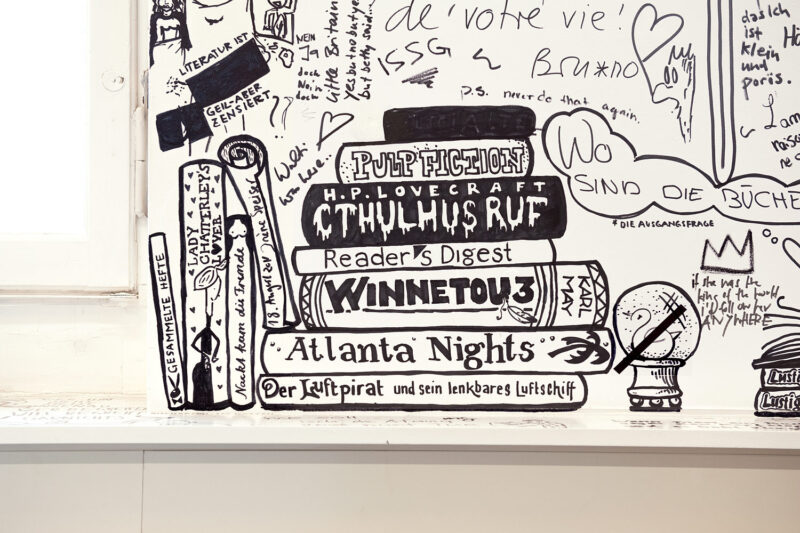 de' votre vie!
KSSG
Bru*no
p.s. never do that again.
das ich
ist
klein
und
LITERATUR IST
GEIL-ABER
ZENSIERT
NEIN
Ja
doch
Nein
doch
Little Britain
yesbutnobutye
but betty said...
Walti
was here...
WO
SIND DIE BÜCHE
#DIE AUSGANGSFRAGE
PULP FICTION
H.P. LOVECRAFT
CTHULHUS RUF
Reader's Digest
WINNETOU 3
KARL
MAY
Atlanta Nights
Der Luftpirat und sein lenkbares Luftschiff
GESAMMELTE HEFTE
LADY
CHATTERLEYS
LOVER
Nackt kam die Fremde
18. August 2011
if she was the
king of the world
i'd follow her
ANYWHERE
Lustig
Lustig